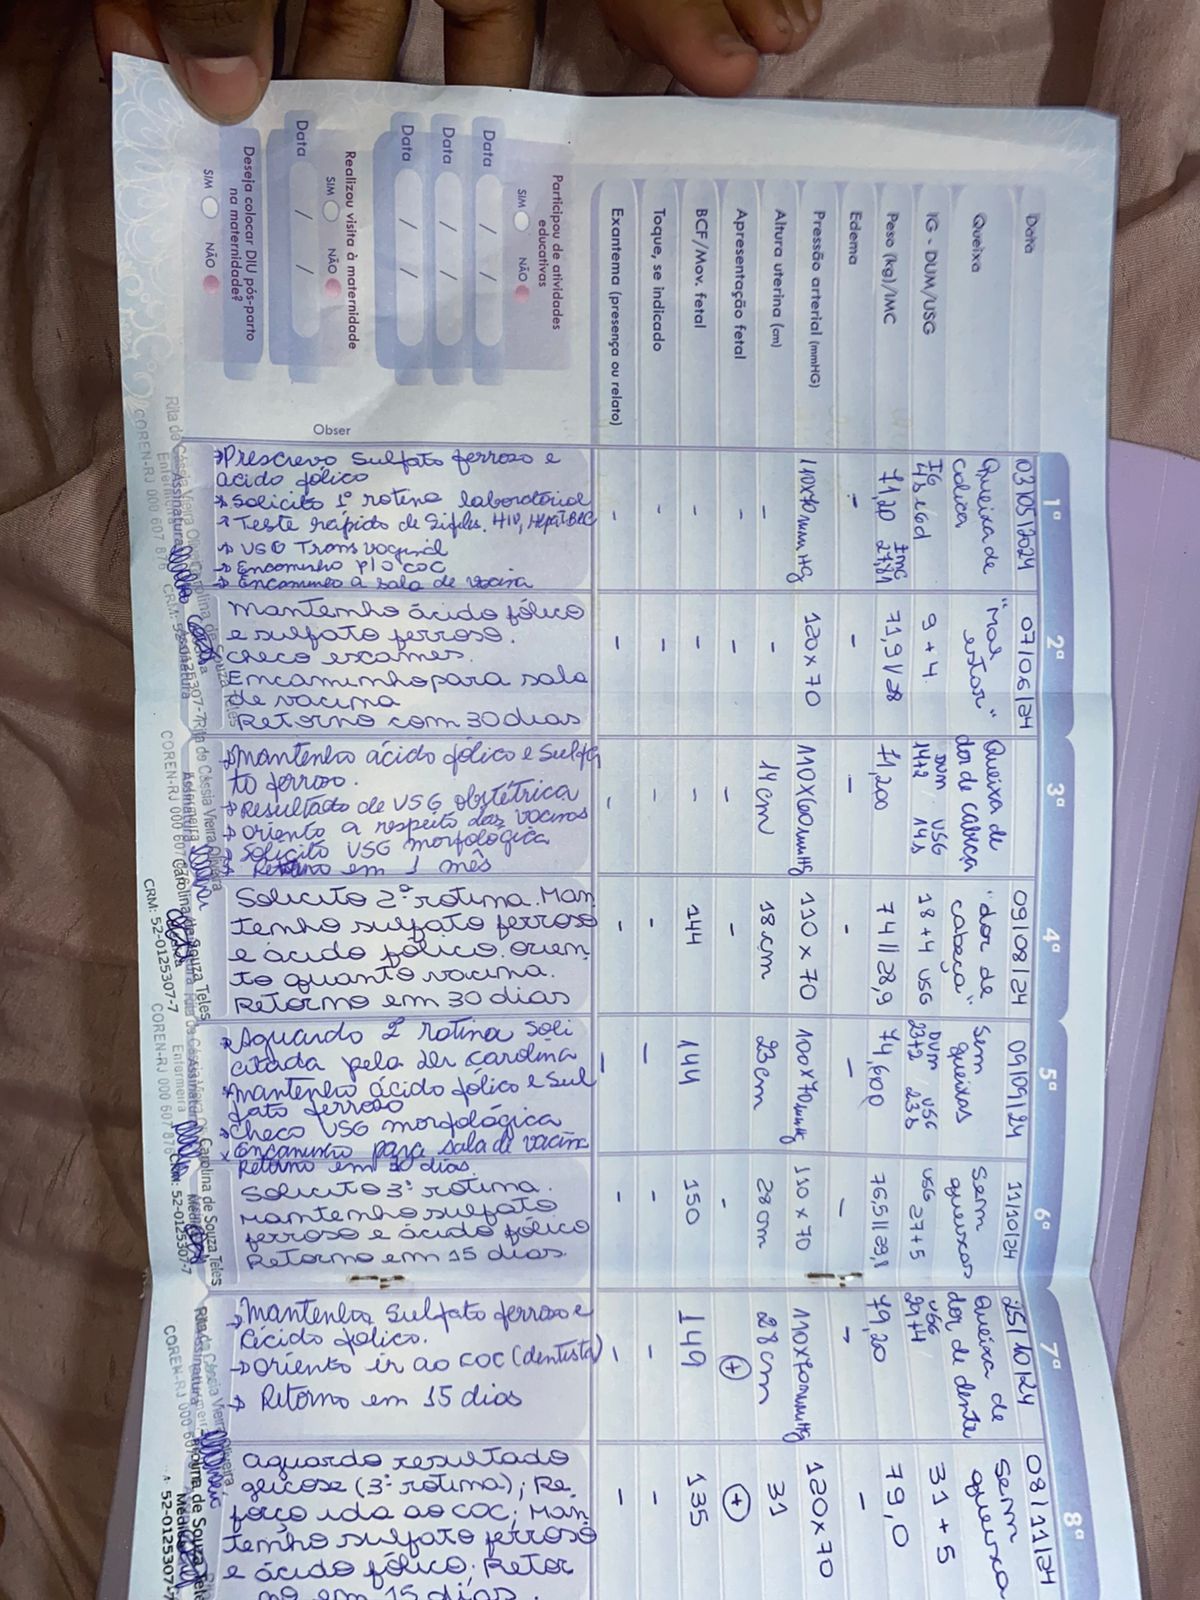 Data
Queixa
IG - DUM/USG
Peso (kg)/IMC
Edema
Pressão arterial (mmHG)
Altura uterina (cm)
Apresentação fetal
BCF/Mov. fetal
Toque, se indicado
Exantema (presença ou relato)
Participou de atividades
educativas
SIM NÃO
Data / /
Data / /
Data / /
Realizou visita à maternidade
SIM NÃO
Data / /
Deseja colocar DIU pós-parto
na maternidade?
SIM NÃO
Obser
1ª
03/05/2024
Queixa de
cólica
IG
4s e 6d
71,20 Imc 27,81
-
110x70mmHg
-
-
-
-
-
→Prescrevo Sulfato ferroso e
ácido fólico
→Solicito 1ª rotina laboratorial
→Teste rápido de Sífilis, HIV, Hepat. B e C
→USG Transvaginal
→Encaminho p/o COC
→Encaminho a sala de vacina
2ª
07/06/24
"Mal
estar"
9 + 4
71,9 // 28
-
120 x 70
-
-
-
-
-
Mantenho ácido fólico
e sulfato ferroso.
Checo exames.
Encaminho para sala
de vacina
Retorno com 30 dias
3ª
Queixa de
dor de cabeça
DUM / USG
14+2 / 14s
71,200
-
110x60mmHg
14cm
-
-
-
-
→Mantenho ácido fólico e Sulfa
to ferroso.
→Resultado de USG obstétrica
→Oriento a respeito das vacinas
→Solicito USG morfológica
→Retorno em 1 mês
4ª
09/08/24
"dor de
cabeça"
18 + 4 USG
74 // 28,9
-
110 x 70
18cm
-
144
-
-
Solicito 2ª rotina. Man
tenho sulfato ferroso
e ácido fólico. Orien
to quanto vacina.
Retorno em 30 dias
5ª
09/09/24
Sem
queixas
DUM / USG
23+2 / 23s
74,600
-
100x70mmHg
23cm
144
-
-
→Aguardo 2ª rotina soli
citada pela dra Carolina
→Mantenho ácido fólico e Sul
fato ferroso
→Checo USG morfológica
→Encaminho para sala de vacina
Retorno em 30 dias.
6ª
11/10/24
Sem
queixas
USG 27+5
76,5 // 29,8
-
110 x 70
28cm
-
150
-
-
Solicito 3ª rotina.
Mantenho sulfato
ferroso e ácido fólico
Retorno em 15 dias
7ª
25/10/24
Queixa de
dor de dente
USG
29+4
79,20
-
110x70mmHg
28cm
+
149
-
-
→Mantenho Sulfato ferroso e
ácido fólico.
→Oriento ir ao COC (dentista)
→Retorno em 15 dias
8ª
08/11/24
Sem
queixa
31 + 5
79,0
-
120x70
31
+
135
-
-
Aguardo resultado
glicose (3ª rotina); Re
forço ida ao COC; Man
tenho sulfato ferroso
e ácido fólico. Retor
no em 15 dias.
Assinatura
Rita de Cássia Vieira Oliveira
Enfermeira
COREN-RJ 000 607 876
Carolina de Souza Teles
Médica
CRM: 52-0125307-7